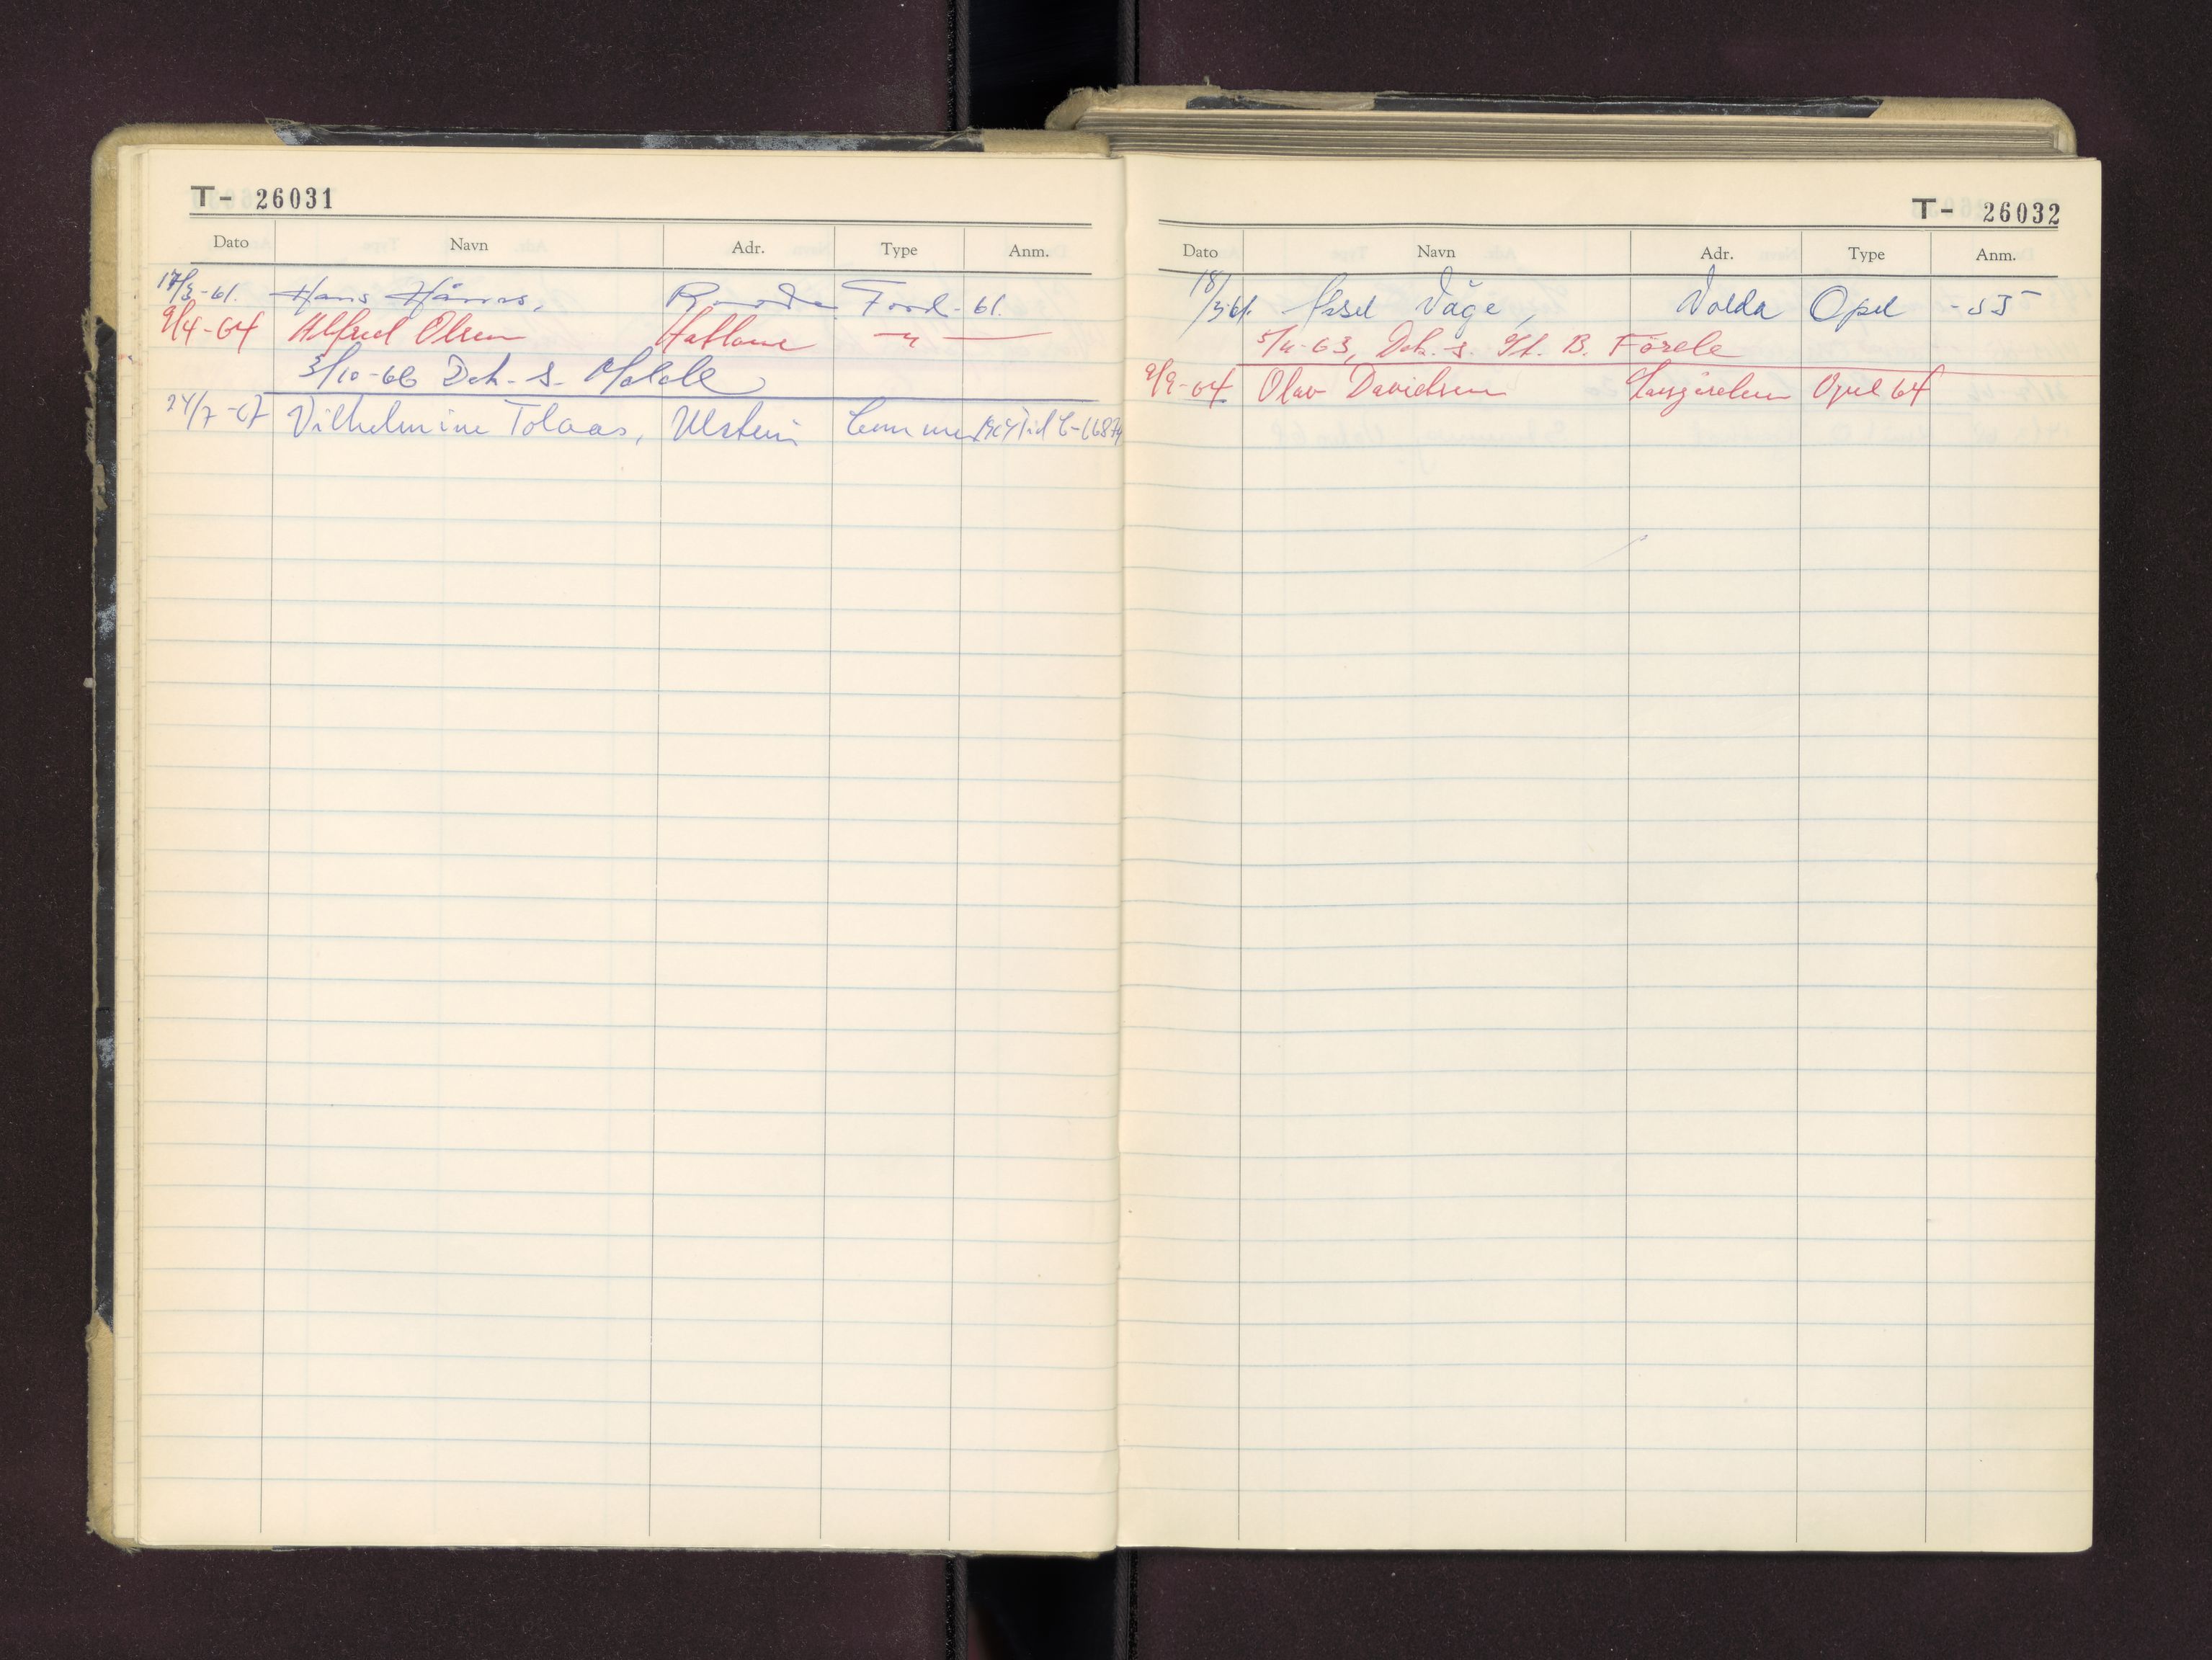 T- 26031
Dato Navn Adr. Type Anm.
17/3-61. Hans Hånes, Ford- 61.
9/4-64 Alfred Olsen Hatløane — " —
3/10-66 Deh. s. Molde
24/7-67 Vilhelmine Tolaas, Ulstein Commer 1964 Tid
T- 26032
Dato Navn Adr. Type Anm.
18/3-61. Våge, Volda Opel -55
5/11-63, Deh. s. St. B. Førde
9/9-64 Olav Davidsen Opel 64